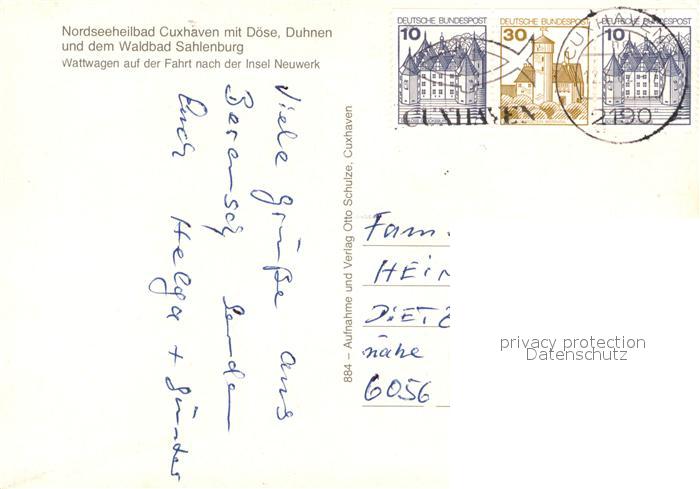 Nordseeheilbad Cuxhaven mit Döse, Duhnen
und dem Waldbad Sahlenburg
Wattwagen auf der Fahrt nach der Insel Neuwerk
DEUTSCHE BUNDESPOST
10
DEUTSCHE BUNDESPOST
30
DEUTSCHE BUNDESPOST
10
CUXHAVEN
CUXHAVEN
2190
Viele Grüße aus
Berensch senden
Euch Helga + Günter
884 – Aufnahme und Verlag Otto Schulze, Cuxhaven
Fam.
HEIN
DIETZ
nahe
6056
privacy protection
Datenschutz